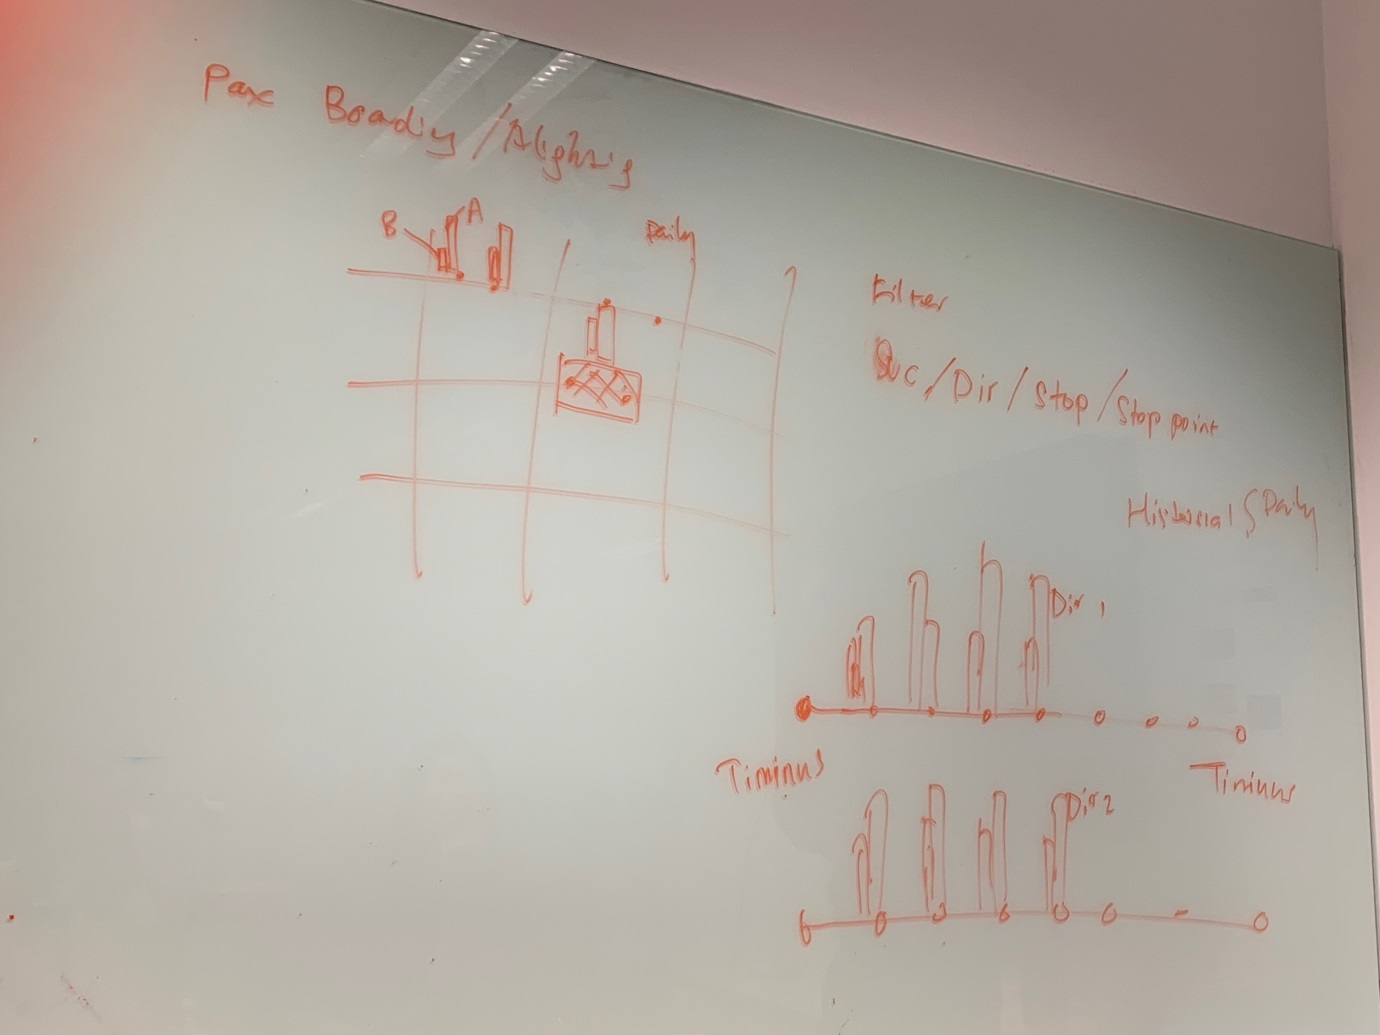 Pax Boarding/Alighting
B A
Daily
Filter
Svc/Dir/Stop/Stop point
Historical & Daily
Dir 1
Timinus Timinus
Dir 2